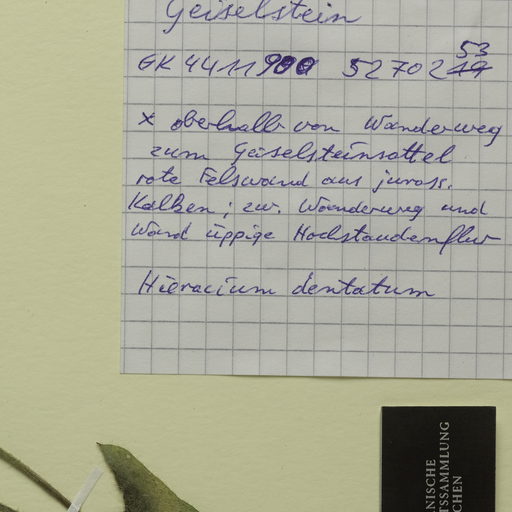 Geiselstein
GK 4411900 5270219 53
x oberhalb von Wanderweg
zum Geiselsteinsattel
rote Felswand aus juross.
Kalken; zw. Wanderweg und
Wand üppige Hochstaudenflur
Hieracium dentatum
NISCHE
TSSAMMLUNG
CHEN